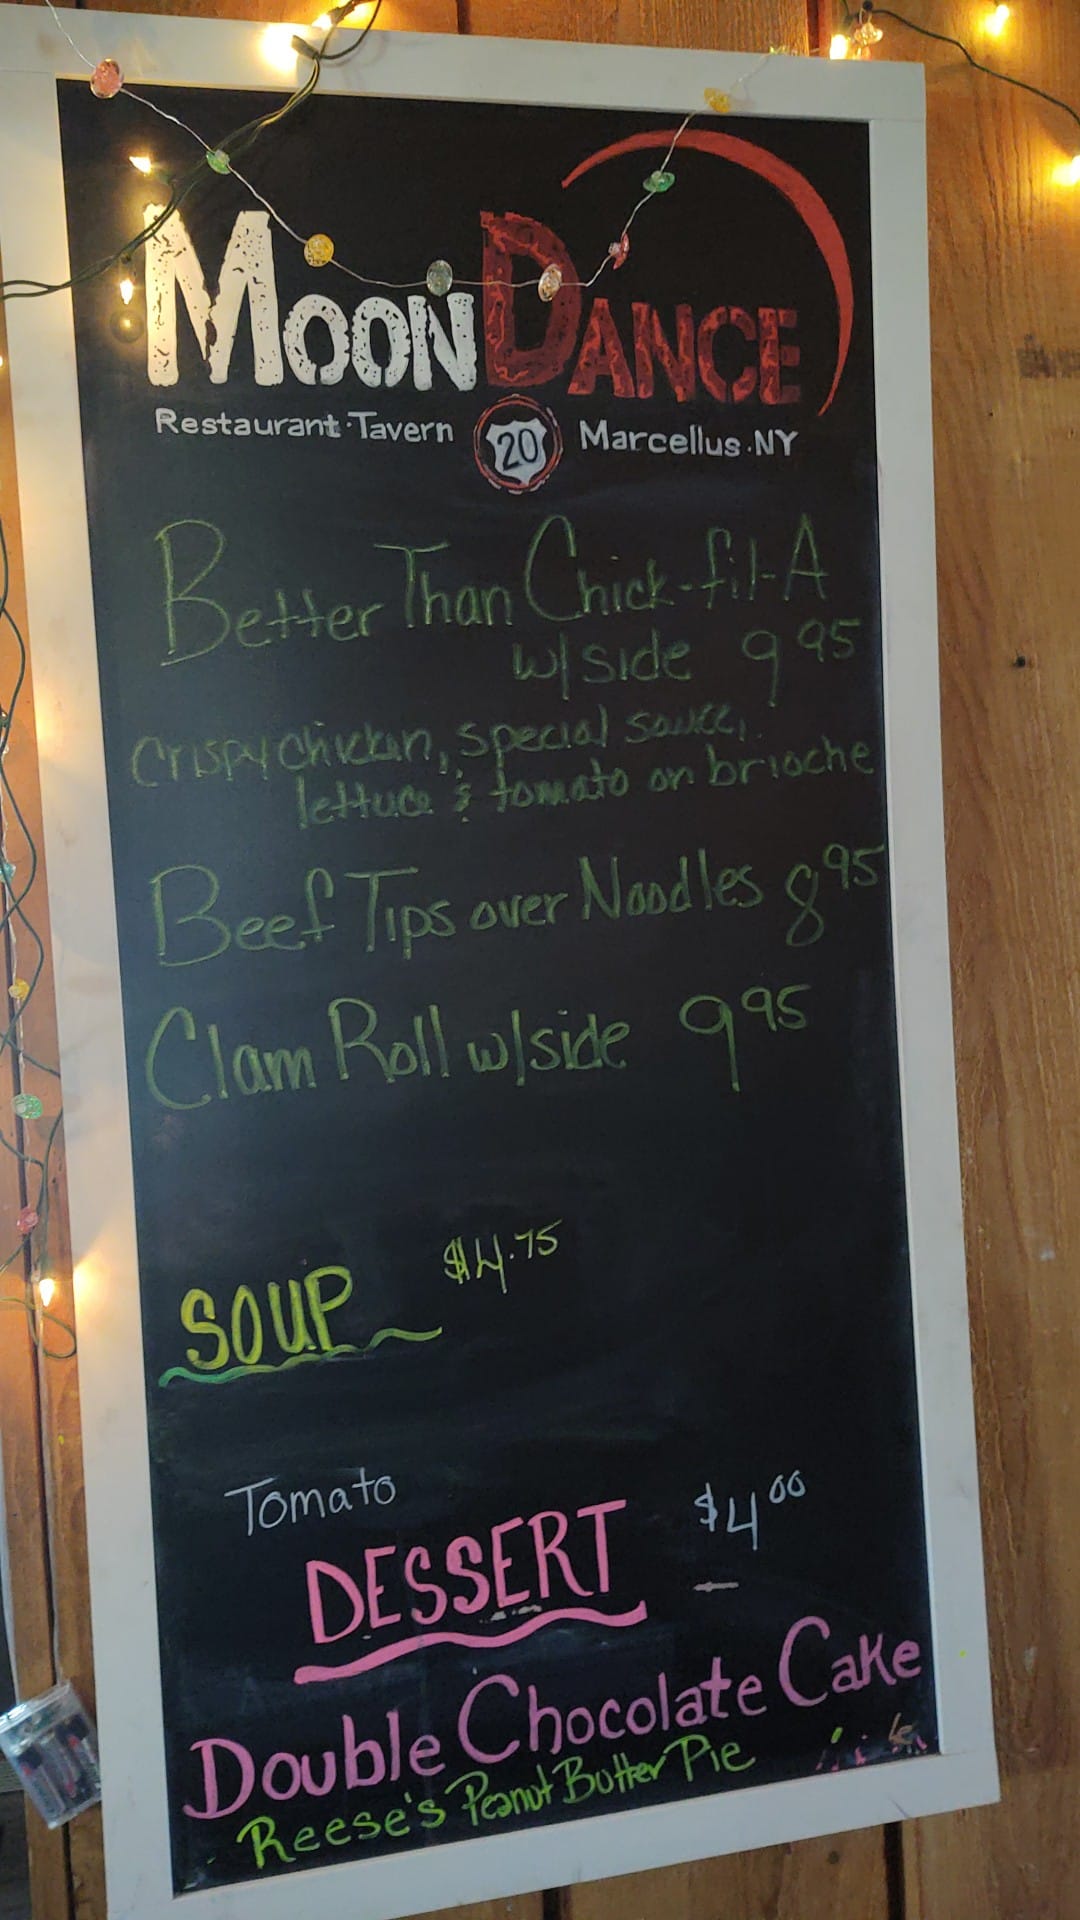 MOONDANCE
Restaurant·Tavern 20 Marcellus·NY
Better Than Chick-fil-A
w/side 9 95
crispy chicken, special sauce,
lettuce & tomato on brioche
Beef Tips over Noodles 8 95
Clam Roll w/side 9 95
$4.75
SOUP
Tomato
DESSERT $4 00
Double Chocolate Cake
Reese's Peanut Butter Pie